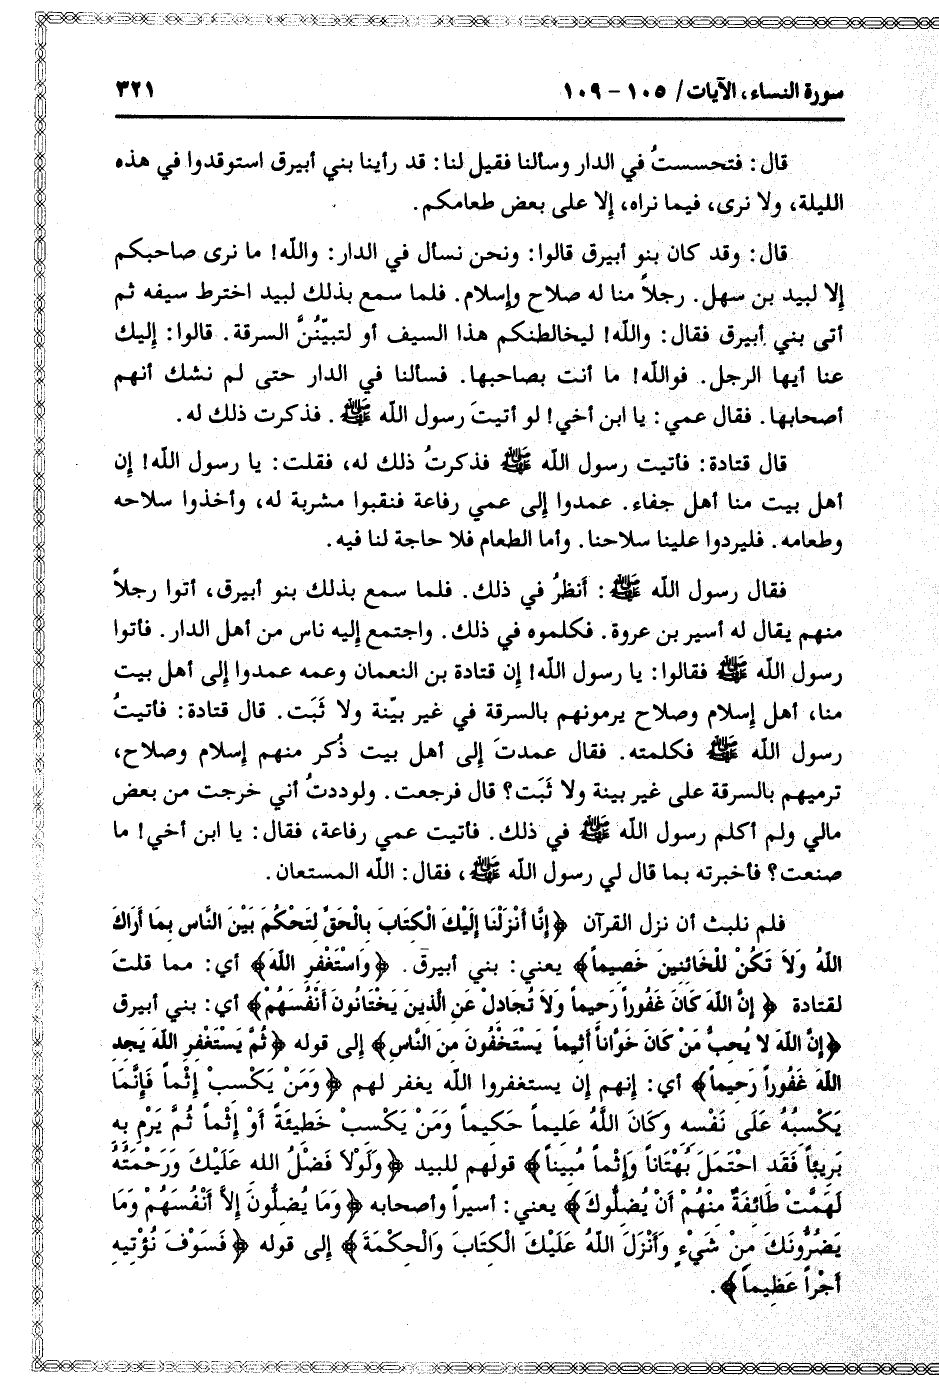 سورة النساء، الآيات/ ١٠٥ - ١٠٩ ٣٢١
قال: فتحسستُ في الدار وسألنا فقيل لنا: قد رأينا بني أبيرق استوقدوا في هذه
الليلة، ولا نرى، فيما نراه، إلا على بعض طعامكم.
قال: وقد كان بنو أبيرق قالوا: ونحن نسأل في الدار: واللّه! ما نرى صاحبكم
إلا لبيد بن سهل. رجلاً منا له صلاح وإسلام. فلما سمع بذلك لبيد اخترط سيفه ثم
أتى بني أبيرق فقال: واللّه! ليخالطنكم هذا السيف أو لتبيّنُنَّ السرقة. قالوا: إليك
عنا أيها الرجل. فواللّه! ما أنت بصاحبها. فسألنا في الدار حتى لم نشك أنهم
أصحابها. فقال عمي: يا ابن أخي! لو أتيتَ رسول اللّه ﷺ. فذكرت ذلك له.
قال قتادة: فأتيت رسول اللّه ﷺ فذكرتُ ذلك له، فقلت: يا رسول اللّه! إن
أهل بيت منا أهل جفاء. عمدوا إلى عمي رفاعة فنقبوا مشربة له، وأخذوا سلاحه
وطعامه. فليردوا علينا سلاحنا. وأما الطعام فلا حاجة لنا فيه.
فقال رسول اللّه ﷺ: أنظرُ في ذلك. فلما سمع بذلك بنو أبيرق، أتوا رجلاً
منهم يقال له أسير بن عروة. فكلموه في ذلك. واجتمع إليه ناس من أهل الدار. فأتوا
رسول اللّه ﷺ فقالوا: يا رسول اللّه! إن قتادة بن النعمان وعمه عمدوا إلى أهل بيت
منا، أهل إسلام وصلاح يرمونهم بالسرقة في غير بيّنة ولا ثَبَت. قال قتادة: فأتيتُ
رسول اللّه ﷺ فكلمته. فقال عمدتَ إلى أهل بيت ذُكر منهم إسلام وصلاح،
ترميهم بالسرقة على غير بينة ولا ثَبَت؟ قال فرجعت. ولوددتُ أني خرجت من بعض
مالي ولم أكلم رسول اللّه ﷺ في ذلك. فأتيت عمي رفاعة، فقال: يا ابن أخي! ما
صنعت؟ فأخبرته بما قال لي رسول اللّه ﷺ، فقال: اللّه المستعان.
فلم نلبث أن نزل القرآن ﴿إِنَّا أَنْزَلْنَا إِلَيْكَ الْكِتَابَ بِالْحَقِّ لِتَحْكُمَ بَيْنَ النَّاسِ بِمَا أَرَاكَ
اللّهُ وَلاَ تَكُنْ لِلْخَائِنِينَ خَصِيماً﴾ يعني: بني أبيرق. ﴿وَاسْتَغْفِرِ اللّهَ﴾ أي: مما قلتَ
لقتادة ﴿إِنَّ اللّهَ كَانَ غَفُوراً رَحِيماً وَلاَ تُجَادِلْ عَنِ الَّذِينَ يَخْتَانُونَ أَنْفُسَهُمْ﴾ أي: بني أبيرق
﴿إِنَّ اللّهَ لا يُحِبُّ مَنْ كَانَ خَوَّاناً أَثِيماً يَسْتَخْفُونَ مِنَ النَّاسِ﴾ إلى قوله ﴿ثُمَّ يَسْتَغْفِرِ اللّهَ يَجِدِ
اللّهَ غَفُوراً رَحِيماً﴾ أي: إنهم إن يستغفروا اللّه يغفر لهم ﴿وَمَنْ يَكْسِبْ إِثْماً فَإِنَّمَا
يَكْسِبُهُ عَلَى نَفْسِهِ وَكَانَ اللَّهُ عَلِيماً حَكِيماً وَمَنْ يَكْسِبْ خَطِيئَةً أَوْ إِثْماً ثُمَّ يَرْمِ بِهِ
بَرِيئاً فَقَدِ احْتَمَلَ بُهْتَاناً وَإِثْماً مُبِيناً﴾ قولهم للبيد ﴿وَلَوْلاَ فَضْلُ الله عَلَيْكَ وَرَحْمَتُهُ
لَهَمَّتْ طَائِفَةٌ مِنْهُمْ أَنْ يُضِلُّوكَ﴾ يعني: أسيراً وأصحابه ﴿وَمَا يُضِلُّونَ إِلاَّ أَنْفُسَهُمْ وَمَا
يَضُرُّونَكَ مِنْ شَيْءٍ وَأَنْزَلَ اللّهُ عَلَيْكَ الْكِتَابَ وَالْحِكْمَةَ﴾ إلى قوله ﴿فَسَوْفَ نُؤْتِيهِ
أَجْراً عَظِيماً﴾.